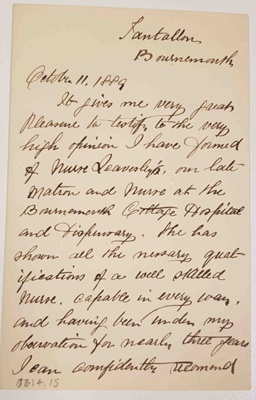 Tantallon
Bournemouth
October 11. 1889
It gives me very great
Pleasure to testify to the very
high opinion I have formed
of Nurse Leaversly's, our late
Matron and Nurse at the
Bournemouth Cottage Hospital
and Dispensary. She has
shown all the nessary qual
ifications of a well skilled
Nurse. capable in every way,
and having been under my
observation for nearly three years
I can confidently recomend